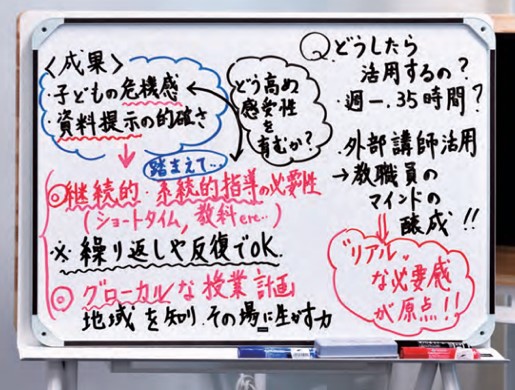 〈成果〉
・子どもの危機感
・資料提示の的確さ
どう高め
感受性
を
育むか？
踏まえて…
◎継続的・系統的指導の必要性
(ショートタイム, 教科etc…)
※繰り返しや反復でOK.
◎グローカルな授業計画
地域を知り、その場に生かす力
Qどうしたら
活用するの？
・週一.35時間？
・外部講師活用
→教職員の
マインドの
醸成!!
"リアル"
な必要感
が原点!!